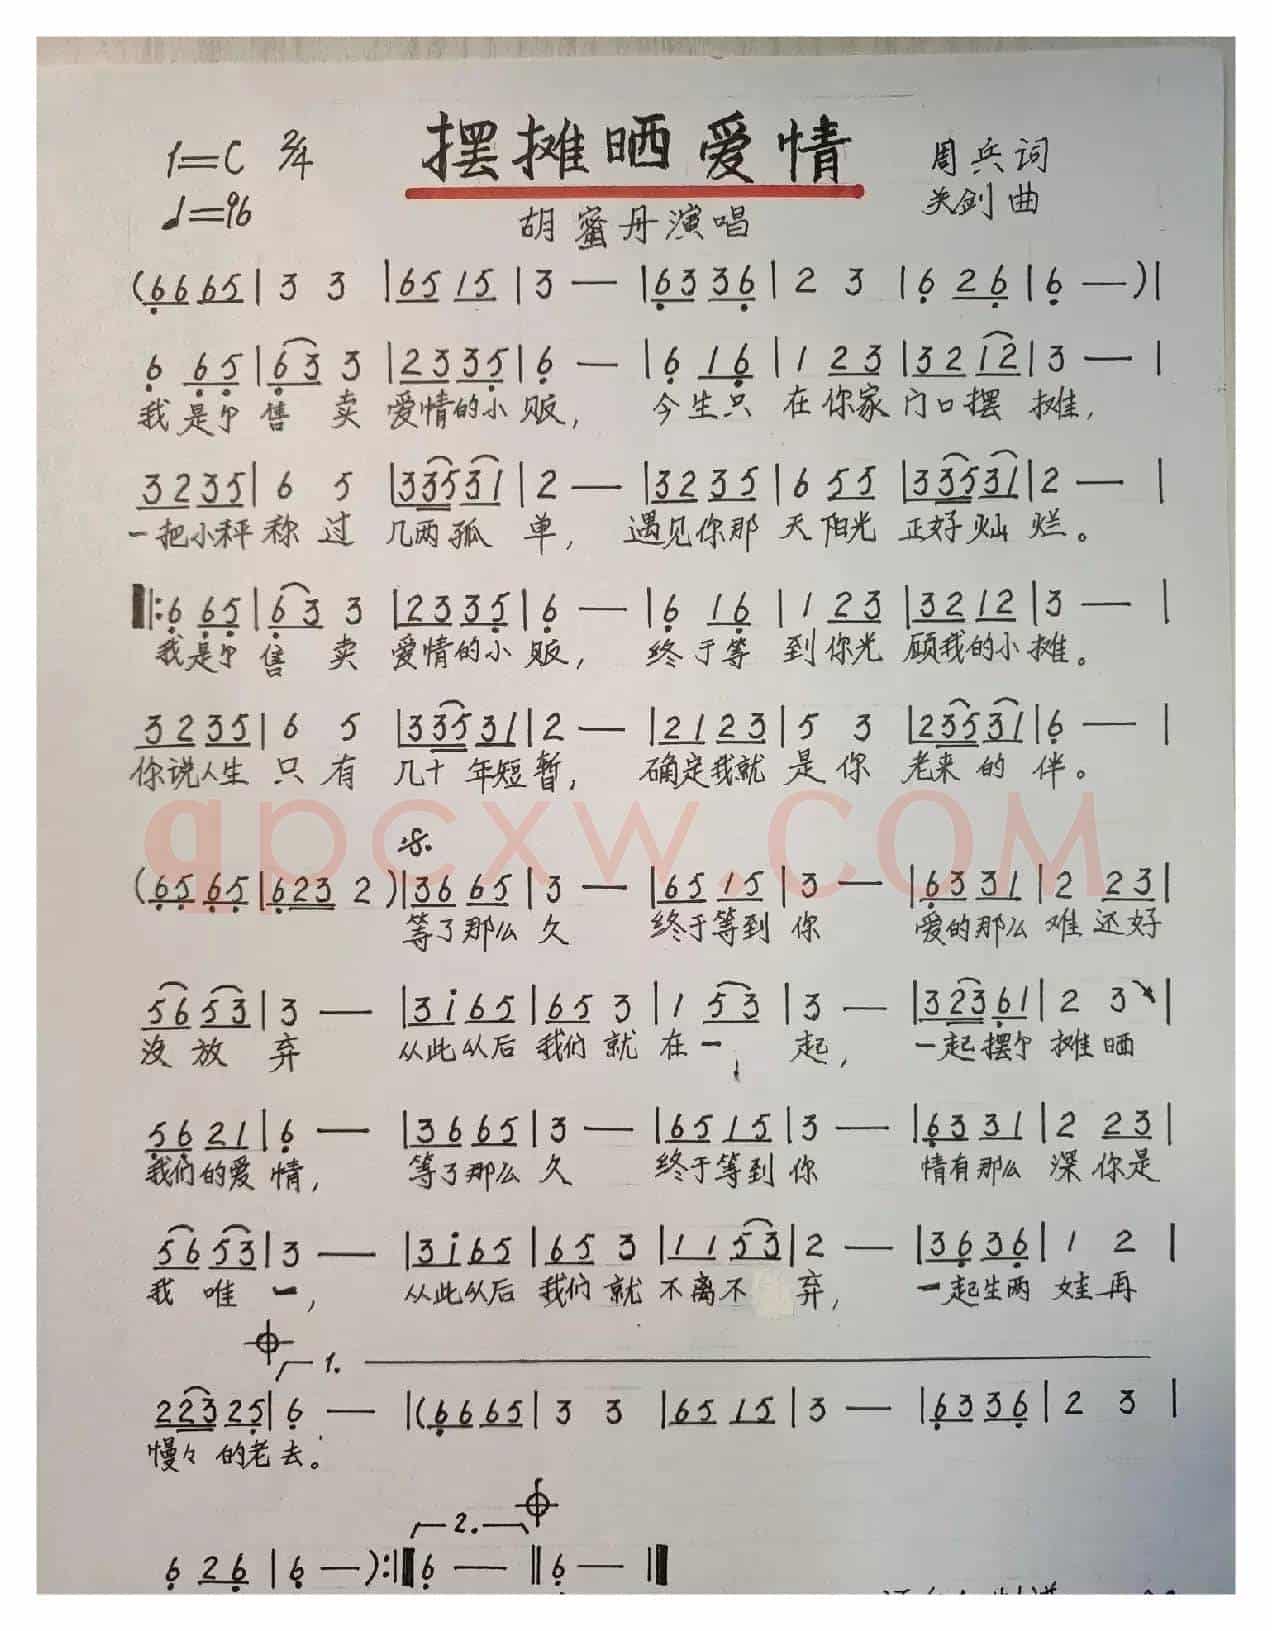 1=C 2/4
♩=96
摆摊晒爱情
胡蜜丹演唱
周兵词
关剑曲
(6665|3 3|6515|3 —|6336|2 3|6 26|6 —)|
6 65|63 3|2335|6 —|6 16|1 23|3212|3 —|
我是个售卖爱情的小贩, 今生只在你家门口摆摊,
3235|6 5|33531|2 —|3235|6 55|33531|2 —|
一把小秤称过几两孤单, 遇见你那天阳光正好灿烂。
‖:6 65|63 3|2335|6 —|6 16|1 23|3212|3 —|
我是个售卖爱情的小贩, 终于等到你光顾我的小摊。
3235|6 5|33531|2 —|2123|5 3|23531|6 —|
你说人生只有几十年短暂, 确定我就是你老来的伴。
qpcxw.COM
(6565|623 2)|3665|3 —|6515|3 —|6331|2 23|
等了那么久 终于等到你 爱的那么难还好
5653|3 —|3i65|65 3|1 53|3 —|32361|2 3|
没放弃 从此从后我们就在一起, 一起摆个摊晒
5621|6 —|3665|3 —|6515|3 —|6331|2 23|
我们的爱情, 等了那么久 终于等到你 情有那么深你是
5653|3 —|3i65|65 3|1153|2 —|3636|1 2|
我唯一, 从此从后我们就不离不弃, 一起生两娃再
1.
22325|6 —|(6665|3 3|6515|3 —|6336|2 3|
慢々的老去。
2.
6 26|6 —):‖6 —‖6 —‖